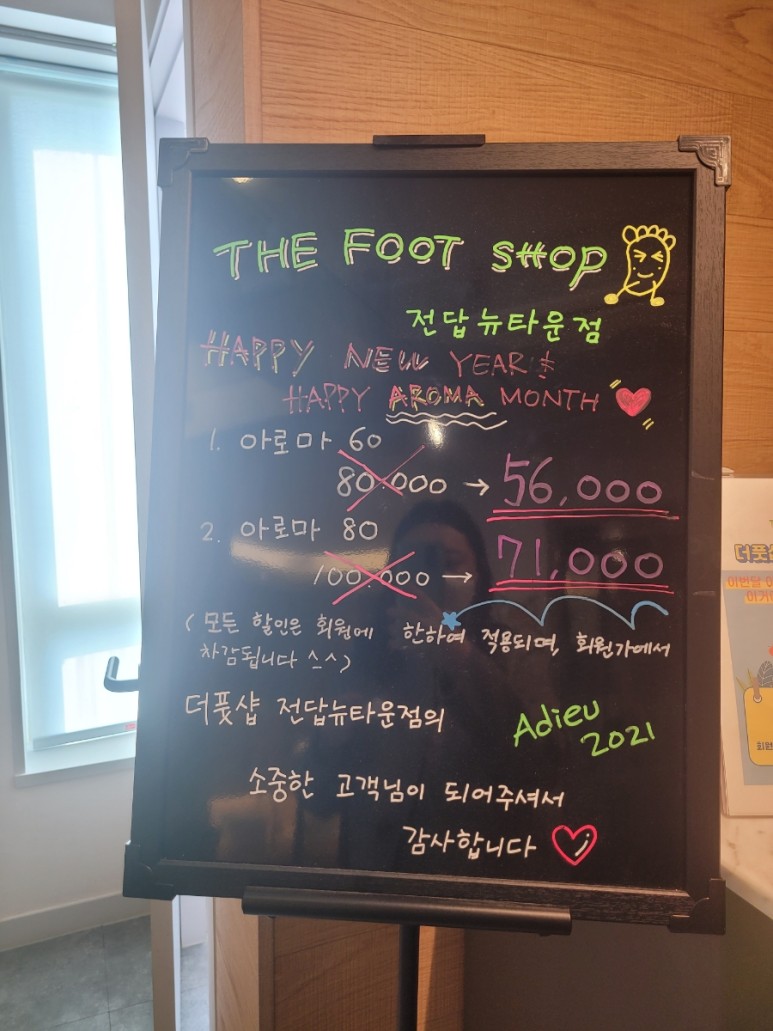 THE FOOT SHOP
전답뉴타운점
HAPPY NEW YEAR &
HAPPY AROMA MONTH
1. 아로마 60
80.000 → 56,000
2. 아로마 80
100.000 → 71,000
(모든 할인은 회원에 한하여 적용되며, 회원가에서
차감됩니다 ^_^)
더풋샵 전답뉴타운점의
Adieu
2021
소중한 고객님이 되어주셔서
감사합니다
더풋샵
이번달
회원